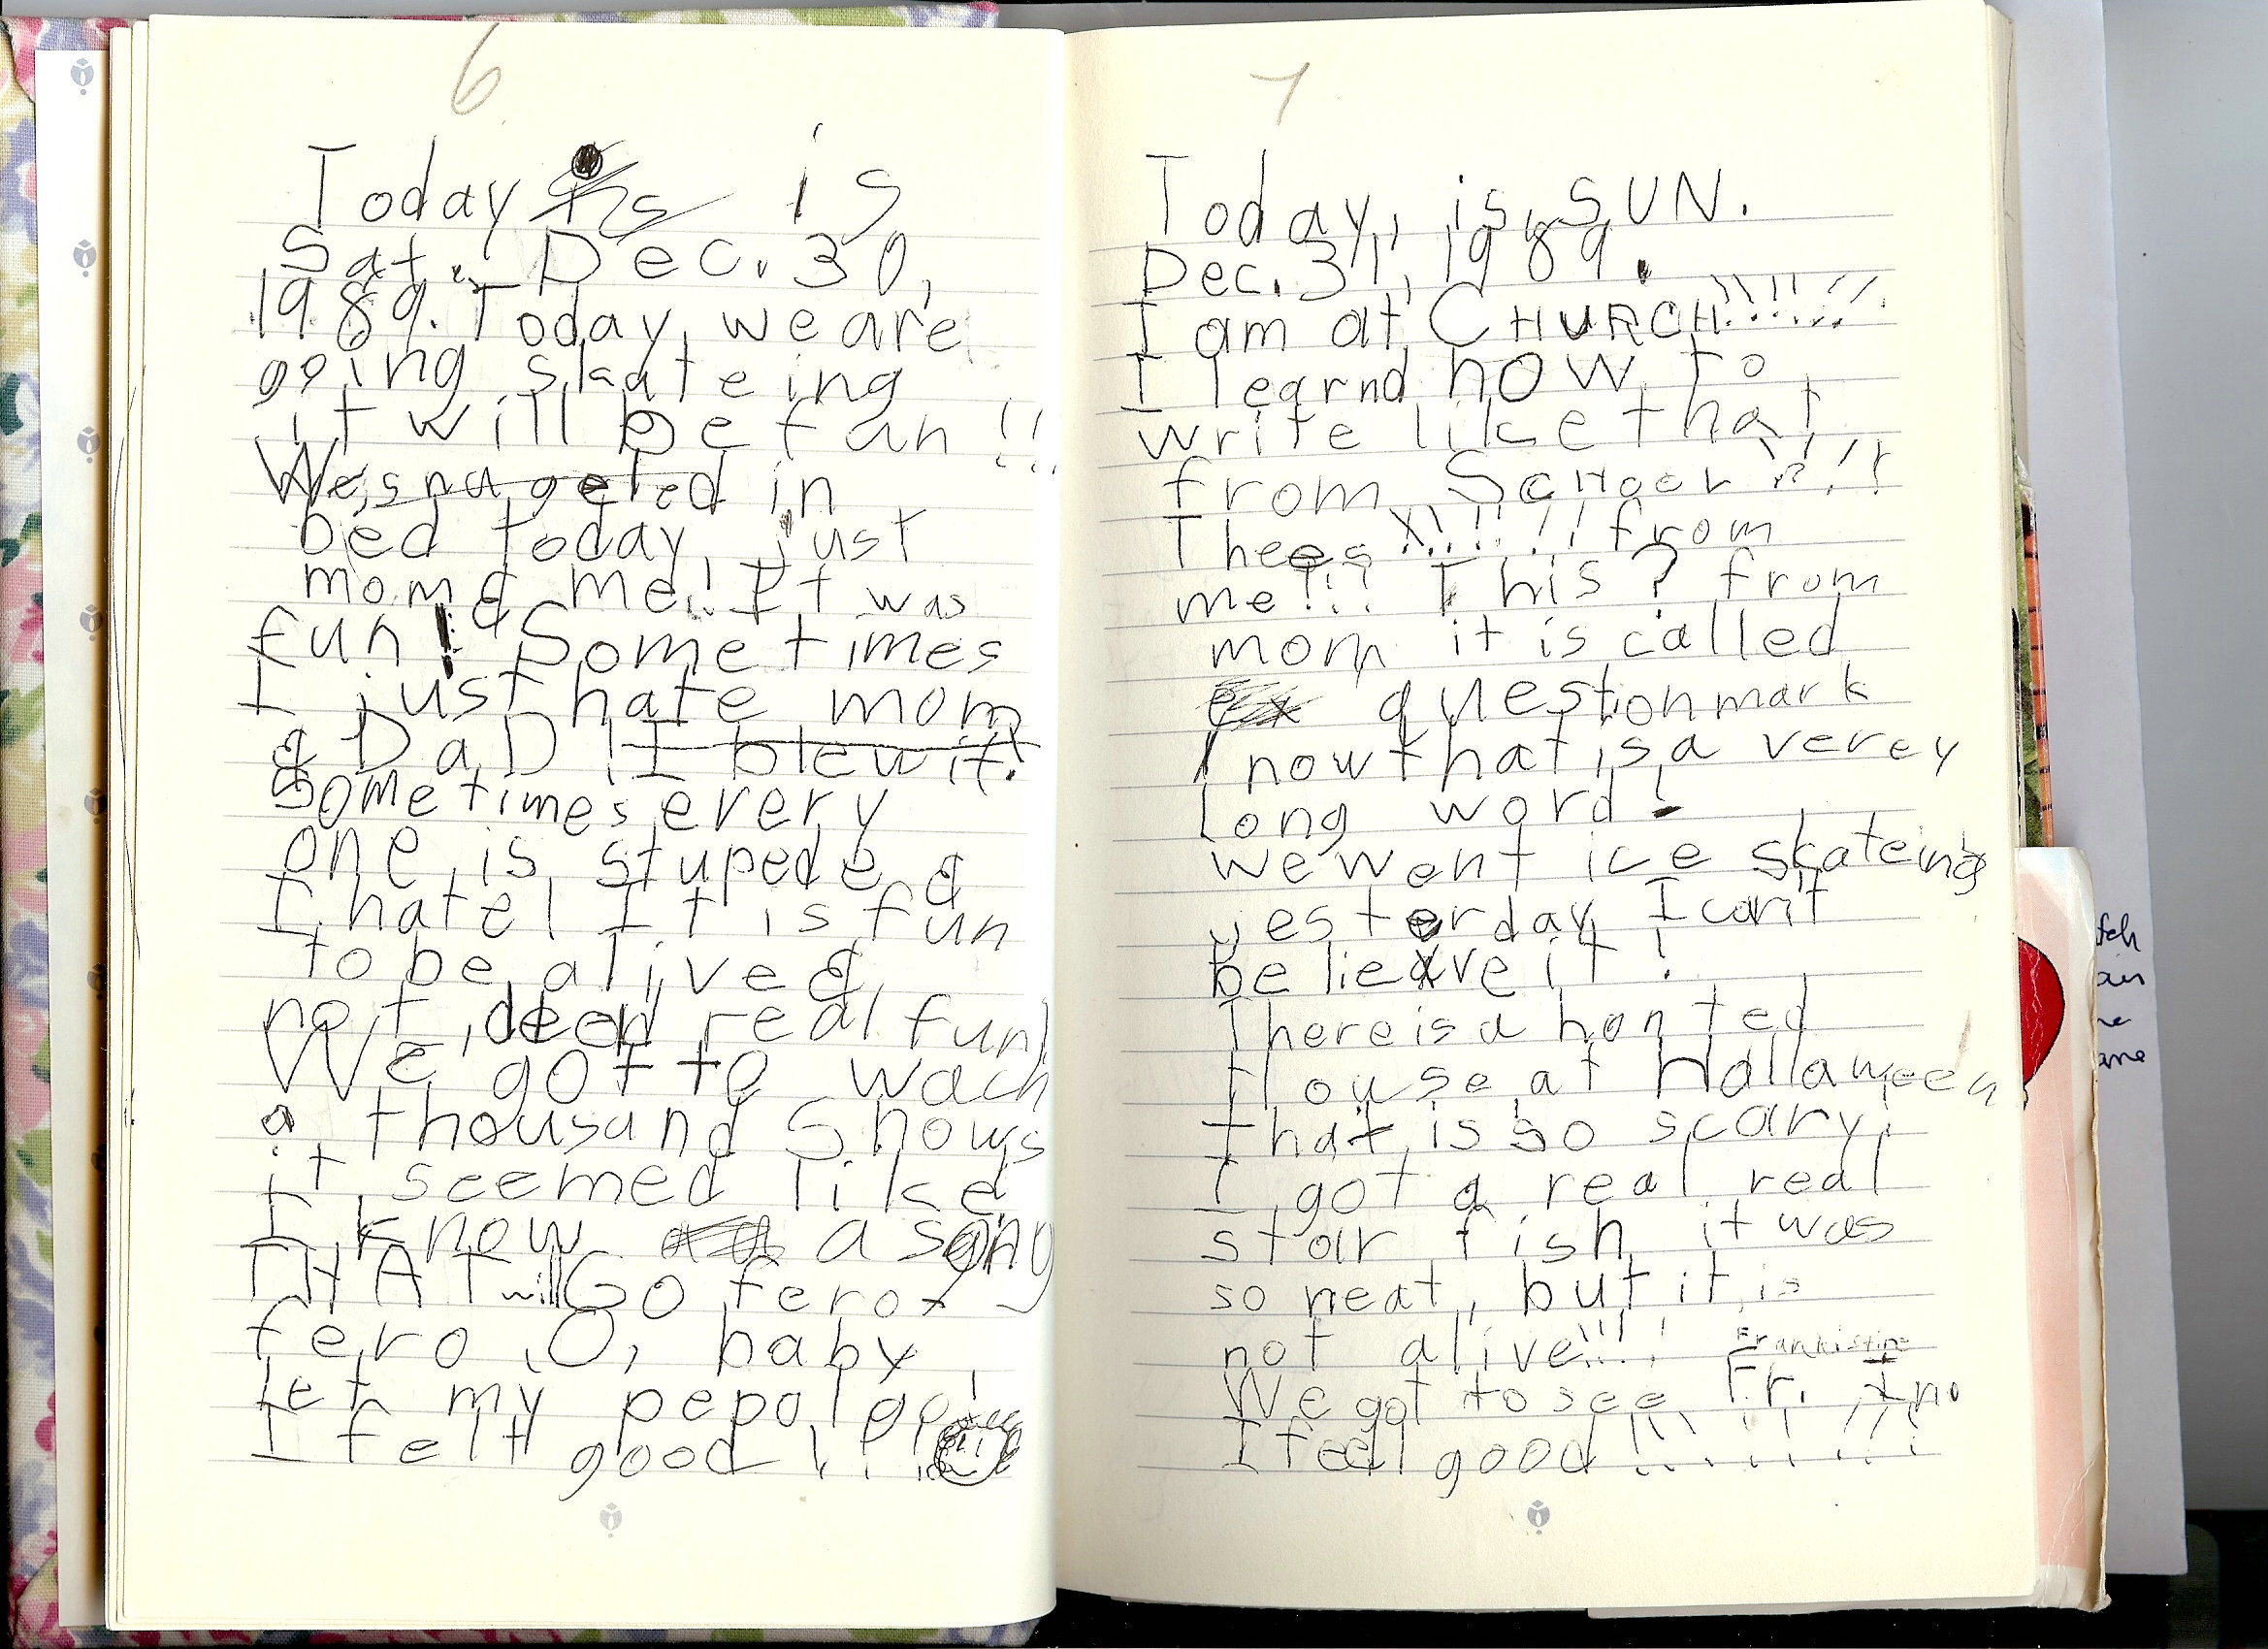 6
Today is is
Sat. Dec. 30,
1989. Today, we are
going skateing
it will be fan !!!
We snugeled in
bed today, just
mom & me! It was
fun! Sometimes
I just hate mom
& DaD! I blew it!
Sometimes every
one is stupede &
I hate! It is fun
to be alive &
not deed real fun!
We got to wach
a thousand Shows
it seemed like
I know a song
THAT will GO fero
fero, O, baby
let my pepol go!
I felt good!!!
7
Today, is, SUN.
Dec. 31, 1989.
I am at CHURCH!!!!!!!
I learnd how to
write like that
from SCHOOL!!!!
Thees !!!!!! from
me!!! This ? from
mom it is called
ex questionmark
I now that is a verey
long word!
we went ice skateing
yesterday I can't
believe it!
There is a honted
House at Hallaween
that is so scary!
I got a real real
star fish it was
so neat, but it is
not alive!!!!
Frankistine
We got to see Fr. I no
I feel good!!!!!!!!